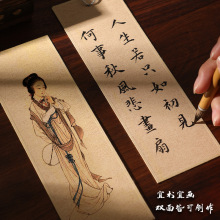 人生若只如初見
何事秋風悲畫扇
宜书宜画
双面皆可创作